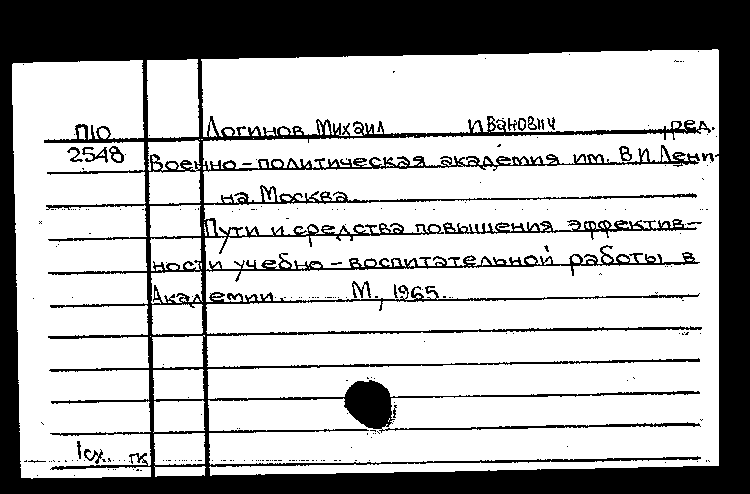 П10 Логинов, Михаил Иванович, ред.
2548 Военно-политическая академия им. В.И. Лени-
на. Москва.
Пути и средства повышения эффектив-
ности учебно-воспитательной работы в
Академии. М., 1965.
1сх. гк